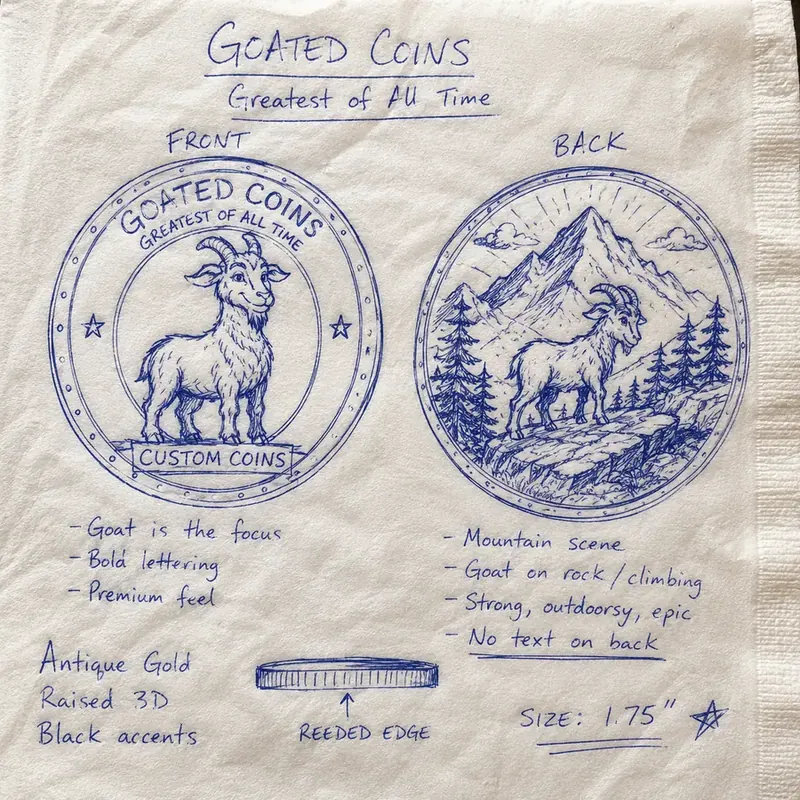 GOATED COINS
Greatest of All Time
FRONT
GOATED COINS
GREATEST OF ALL TIME
CUSTOM COINS
- Goat is the focus
- Bold lettering
- Premium feel
BACK
- Mountain scene
- Goat on rock / climbing
- Strong, outdoorsy, epic
- No text on back
Antique Gold
Raised 3D
Black accents
REEDED EDGE
SIZE: 1.75"